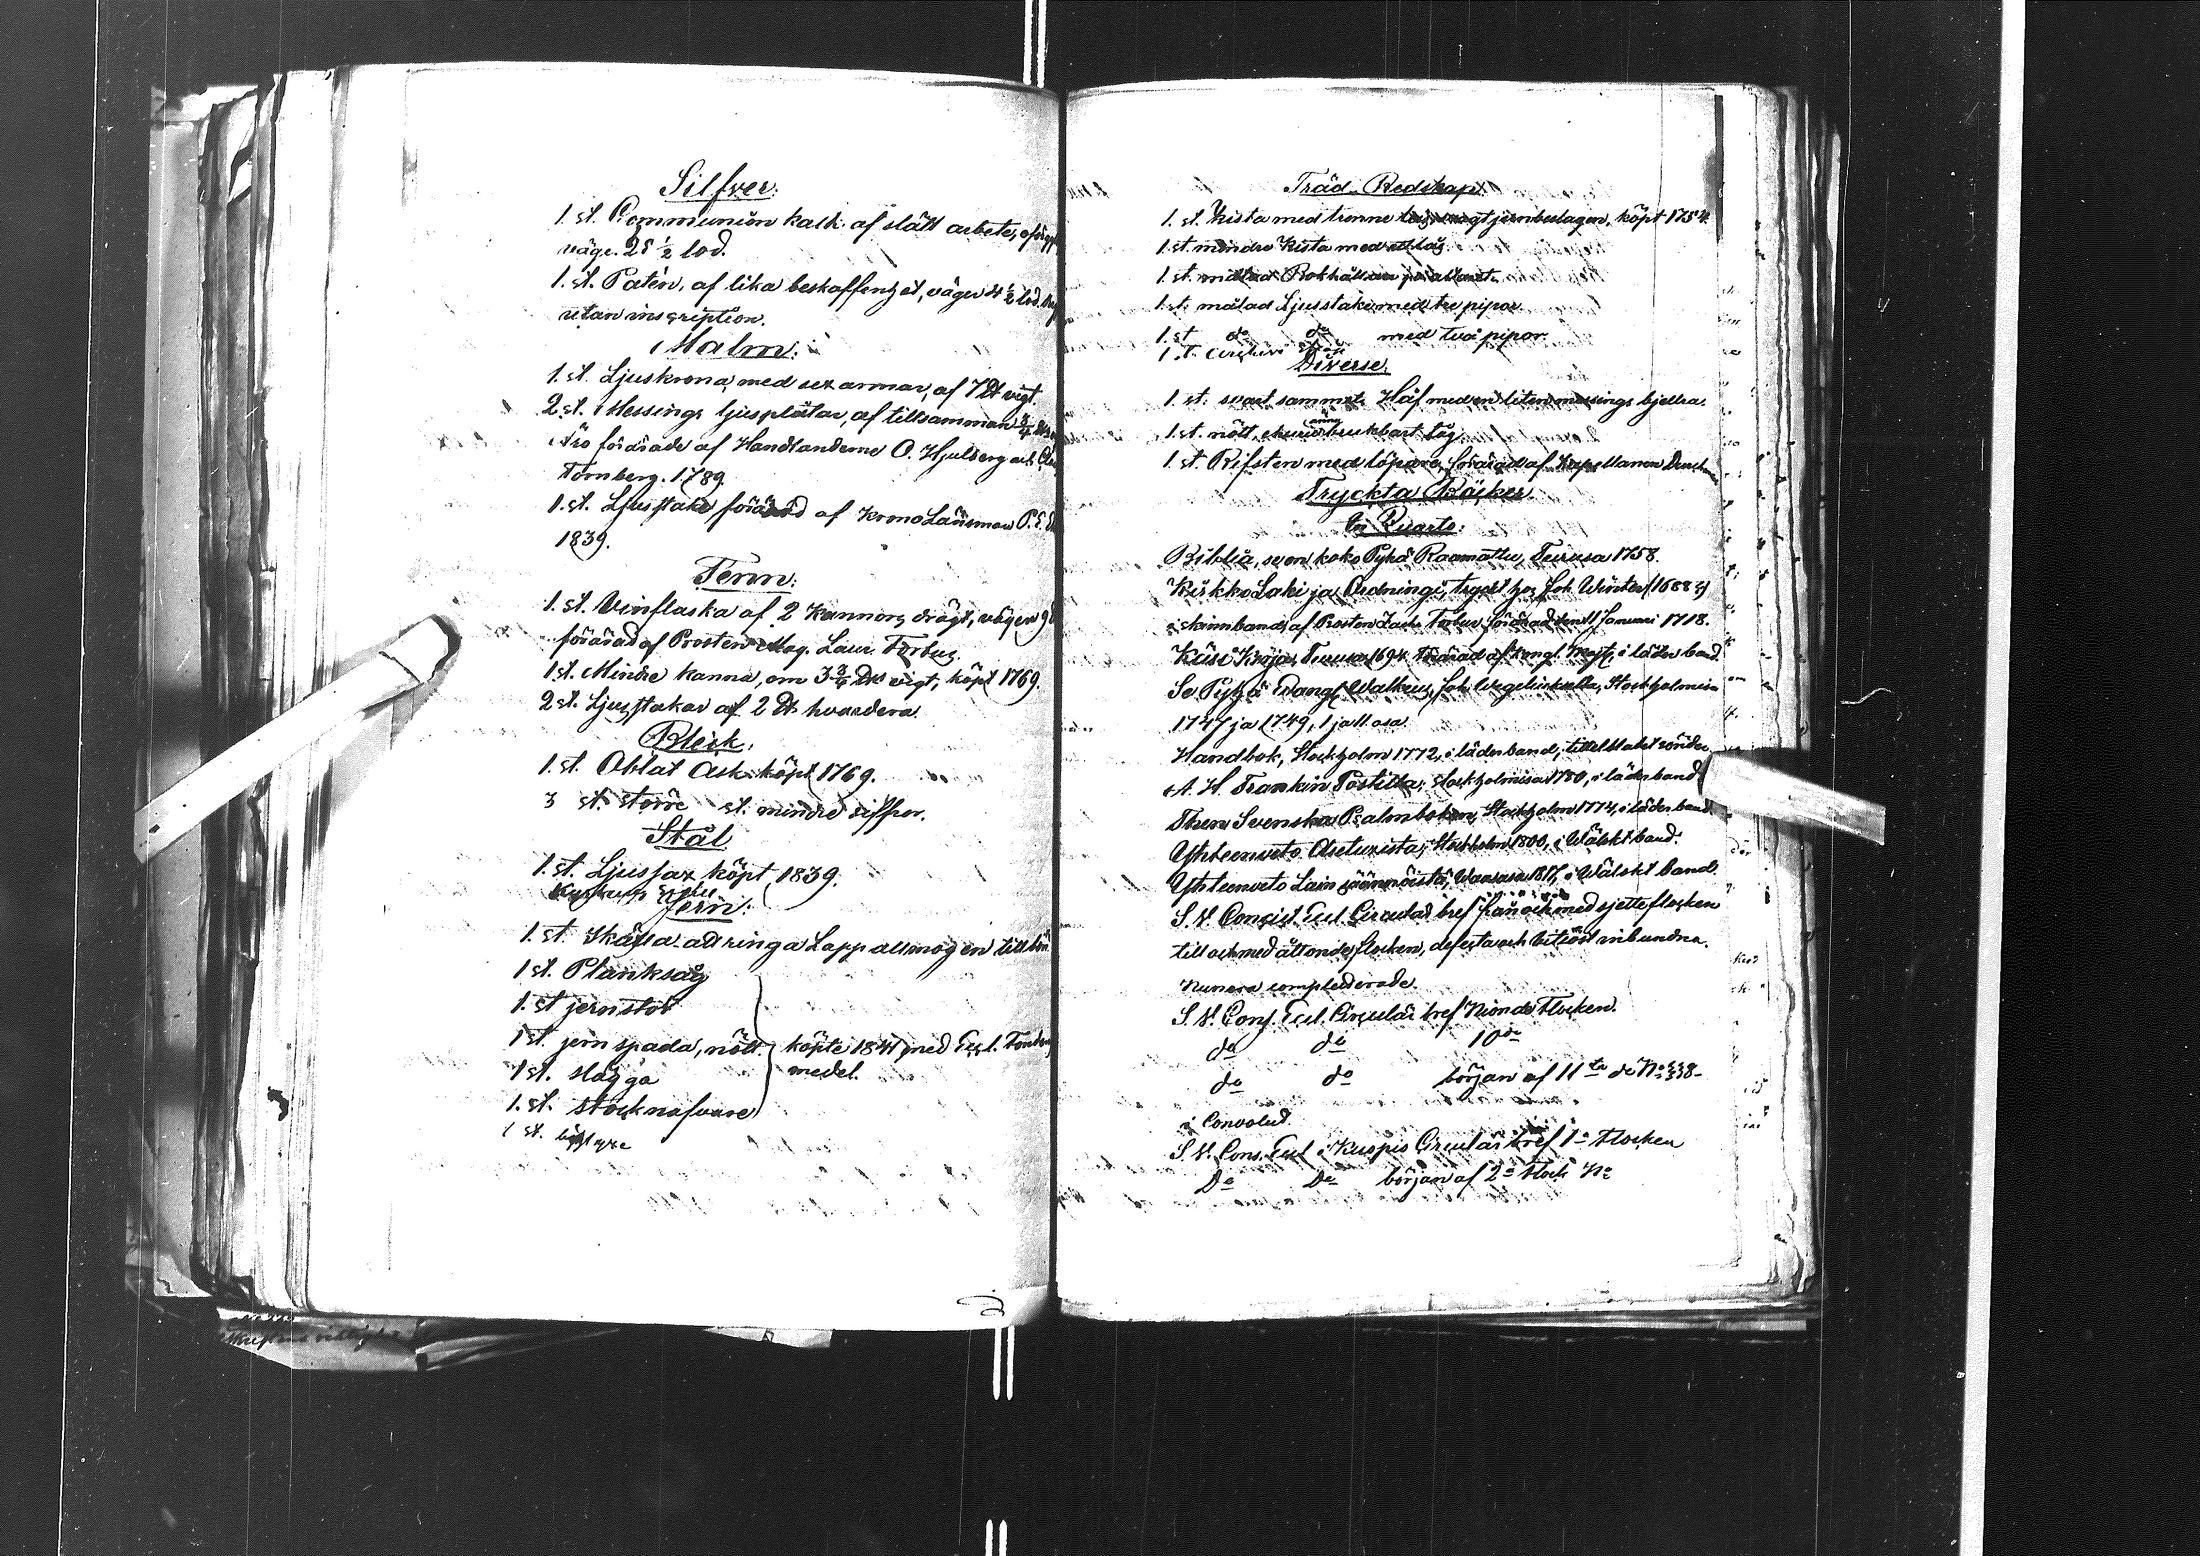 Silfver:
1. st. Communion kalk af slätt arbete,
väge. 25 1/2 lod.
1. st. Patén, af lika beskaffenhet, väger 4 1/2 lod.
utan inscription.
Malm:
1. st. Ljuskrona med sex armar, af 7 ℔ vigt.
2 st. Messings ljusplåtar, af tillsamman 3/4
Äro förärade af Handlanderne O. Hjulberg och
Tornberg. 1789.
1. st. Ljusstake förärad af KronoLänsman P. E.
1839.
Tenn:
1. st. Vinflaska af 2 Kannors drägt, väger
förärad af Prosten Mag. Laur. Forbus.
1 st. Mindre kanna, om 3 3/4 ℔s vigt, köpt 1769.
2 st. Ljusstakar af 2 ℔ hvardera.
Bleck.
1. st. Oblat Ask köpt 1769.
3 st. större st. mindre siffror.
Stål
1. st. Ljussax köpt 1839.
Jern:
1. st. Skälla att ringa Lappallmogen till
1 st. Planksåg
1. st jernstör
1 st. jern spada, nött. köpte 1841 med Eccl.
1 st. slägga medel.
1. st. stocknafvare
1 st.
Träd-Redskap.
1. st. Kista med trenne jernbeslagen, köpt 1754.
1 st. mindre Kista med ett lås.
1 st. målad Bokhållare på altaret.
1 st. målad Ljusstake med tre pipor.
1. st do do med två pipor.
1. st.
Diverse.
1. st. svart sammets Håf med en liten messings bjellra.
1. st. nött, ehuru ännu brukbart tåg.
1. st. Rifsten med löpare, förärad af Kapellanen
Tryckta Böcker
In Quarto:
Biblia, se on koko Pyhä Raamattu, Turusa 1758.
Kirkko Laki ja Ordningi, tryckt hos Joh. Winter 1688
i skinnband, af Prosten Zach. Forbus förärad den 11 Januari 1718.
Käsi Kirja, Turusa 1694. Förärad af Kongl. Majt, i läder band.
Se Pyhä Evangl. Walkeus, Joh. Wegeliukselta, Stockholmisa
1747 ja 1749, I ja II osa.
Handbok, Stockholm 1772, i läderband, titelbladet sönder
A. H. Frankin Postilla, Stockholmisa 1780, i läderband
Then Svenska Psalmboken, Stockholm 1774, i läderband
Yhteenveto Asetuxista, Stockholm 1800, i Wälskt band.
Yhteenveto Lain säännöistä, Waasasa 1817, i Wälskt band.
S. V. Consist. Eccl. Circulär bref från och med sjette flocken
till och med åttonde flocken, defecta och inbundna.
Numera completterade.
S. V. Cons. Eccl. Circulär bref Nionde Flocken.
do do 10de
do do början af 11te do No 338.
i Convolut.
S. V. Cons. Eccl. i Kuopio Circulär bref 1a Flocken
Do Do början af 2a Flock No